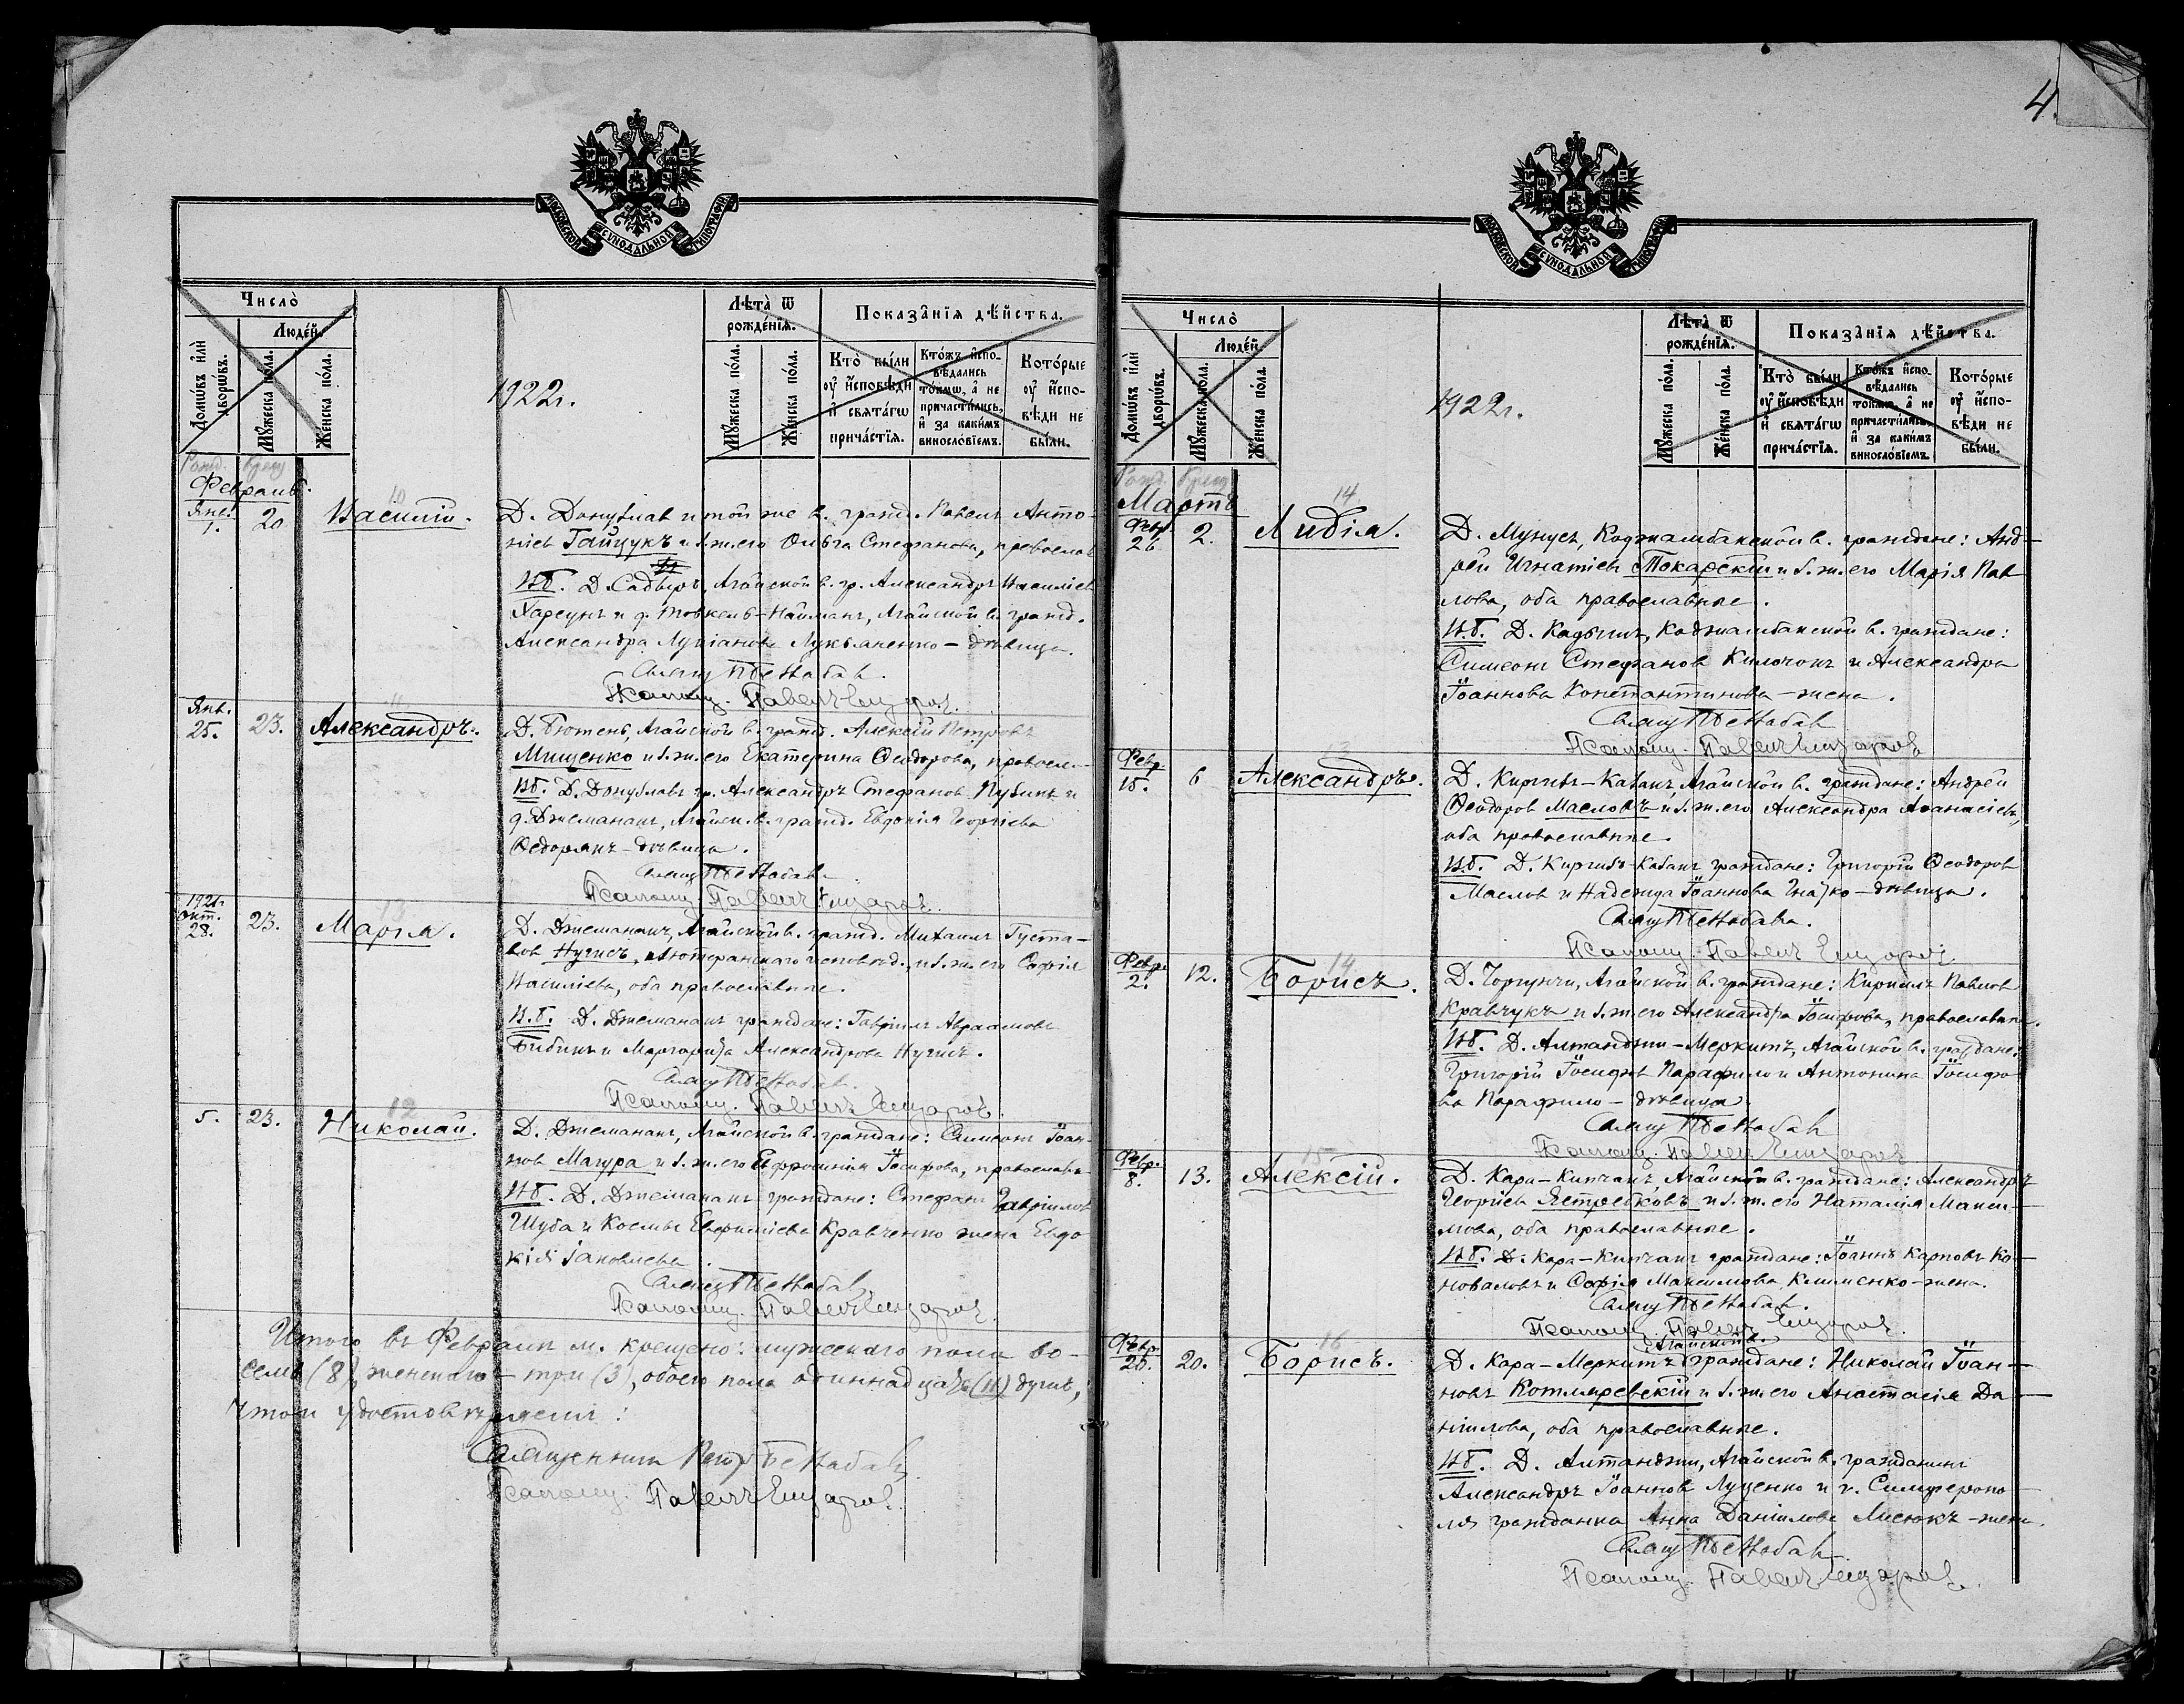 4.
МОСКОВСКОЙ СѴНОДАЛЬНОЙ ТИПОГРАФІИ
Число̀
Людей.
Домѡвъ илѝ дворѡвъ.
Мꙋжеска по́ла.
Же́нска по́ла.
1922г.
Лѣта̀ ѿ рожде́нїѧ.
Мꙋжеска по́ла.
Же́нска по́ла.
Показа̑нїѧ дѣ́йства.
Кто̀ были ᲂу҆ и҆сповѣди и҆ свѧта́гѡ прича́стїѧ.
Кто́жъ и҆спо-
вѣдались
то́кмѡ, а҆ не
причасти́лись,
и҆ за каки́мъ
винослові́емъ.
Кото́рые
ᲂу҆ и҆спо-
вѣди не
бы́ли.
Рожд. Крещ
Февраль.
Янв. 1. 20 10 Василій.
Д. Донузлав и той же в. гражд. Павел Анто-
ніев Гайдукъ и з.ж. его Ольга Стефанова, православ
Вб. Д. Садыръ, Агайской в. гр. Александръ Василіев
Харсунъ и д. Товкель-Найманъ, Агайской в. гражд.
Александра Лукіанова Лукьяненко - дѣвица.
Свящ П Бенабав.
Псаломщ. Павелъ
Янв. 25. 23. 11 Александръ.
Д. Бютень, Агайской в. гражд. Алексій Петровъ
Мищенко и з.ж. его Екатерина Ѳеодорова, правосл.
Вб. Д. Донузлавъ гр. Александръ Стефанов и
д. Джеманакъ, Агайск. в. гражд. Евдокія Георгіева
Ѳедорякъ - дѣвица.
Свящ П Бенабав
Псаломщ. Павелъ
1921г окт. 28. 23. 13 Марія.
Д. Джеманакъ, Агайской в. гражд. Михаилъ Густа-
вов Нугисъ, лютеранского исповѣд., и з.ж. его Софія
Василіева, оба православные.
В.б. Д. Джеманакъ граждане: Гавріилъ Авраамовъ
Бибикъ и Маргарита Александрова Нугисъ.
Свящ П Бенабав.
Псаломщ. Павелъ
5. 23. 12 Николай.
Д. Джеманакъ, Агайской в. граждане: Симеонъ Іоан-
нов Магура и з.ж. его Евфросинія Іосифова, православн
Вб. Д. Джеманакъ граждане: Стефанъ Гавріиловъ
Шуба и Космы Евфиміева Кравченко жена Евдо
кія Іаковлева.
Свящ П Бенабав.
Псаломщ. Павелъ
Итого въ Февралѣ м. крещено: мужескаго пола во-
семь (8), женскаго - три (3), обоего пола одиннадцать (11) душъ,
что и удостовѣряемъ:
Священник Петр Бенабав.
Псаломщ. Павелъ
МОСКОВСКОЙ СѴНОДАЛЬНОЙ ТИПОГРАФІИ
Число̀
Людей.
Домѡвъ илѝ дворѡвъ.
Мꙋжеска по́ла.
Же́нска по́ла.
1922г.
Лѣта̀ ѿ рожде́нїѧ.
Мꙋжеска по́ла.
Же́нска по́ла.
Показа̑нїѧ дѣ́йства.
Кто̀ были ᲂу҆ и҆сповѣди и҆ свѧта́гѡ прича́стїѧ.
Кто́жъ и҆спо-
вѣдались
то́кмѡ, а҆ не
причасти́лись,
и҆ за каки́мъ
винослові́емъ.
Кото́рые
ᲂу҆ и҆спо-
вѣди не
бы́ли.
Рожд. Крещ
Мартъ
Фев 26. 2. 14. Лидія.
Д. Мунусъ, Коджамбакской в. граждане: Анд-
рей Игнатіев Токарскій и з.ж. его Марія Пав
лова, оба православные.
В.б. Д. Кадышъ, Коджамбакской в. граждане:
Симеонъ Стефанов и Александра
Іоаннова Константинова - жена.
Свящ П Бенабав
Псаломщ. Павелъ
Февр. 15. 6 13 Александръ.
Д. Киргизъ-Кабакъ, Агайской в. граждане: Андрей
Ѳеодоров Масловъ и з.ж. его Александра Аѳанасіева,
оба православные.
Вб. Д. Киргизъ-Кабакъ граждане: Григорій Ѳеодоров
Маслов и Надежда Іоаннова Гнатко - дѣвица.
Свящ П Бенабава.
Псаломщ. Павелъ
Февр. 2. 12. 14 Борисъ.
Д. Чоргунчи, Агайской в. граждане: Кириллъ Павлов
Кравчукъ и з.ж. его Александра Іосифова, православные.
Вб. Д. Алтанджи-Меркитъ, Агайской в. граждане:
Григорій Іосифов Парафило и Антонина Іосифо
ва Парафило - дѣвица.
Свящ П Бенабав
Псаломщ. Павелъ
Февр. 8. 13. 15 Алексій.
Д. Кара-Кипчакъ, Агайской в. граждане: Александръ
Георгіев Ястребковъ и з.ж. его Наталія Макси-
мова, оба православные.
Вб. Д. Кара-Кипчакъ граждане: Іоаннъ Карповъ Ко-
новаловъ и Софія Максимова Клименко - жена.
Свящ П Бенабав.
Псаломщ. Павелъ
Февр. 20. 20. 16 Борисъ.
Агайской в.
Д. Кара-Меркитъ граждане: Николай Іоан-
новъ Котляревскій и з.ж. его Анастасія Да-
ніилова, оба православные.
Вб. Д. Алтанджи, Агайской в. гражданинъ
Александръ Іоаннов Луценко и г. Симферопо-
ля гражданка Анна Даніилова Мисюкъ - жена.
Свящ П Бенабав.
Псаломщ. Павелъ